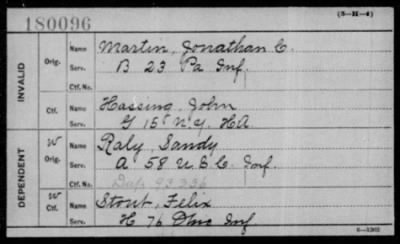 180096
(3-H-4)
INVALID
Orig.
Name Martin, Jonathan C.
Serv. B 23 Pa Inf.
Ctf. No.
Ctf.
Name Hassing, John
Serv. G 15 N.Y. HA
DEPENDENT
W Orig.
Name Raly, Sandy
Serv. A 58 U.S.C. Inf.
Ctf. No. Dup 93336
W Ctf.
Name Stout, Felix
Serv. H 76 Inf